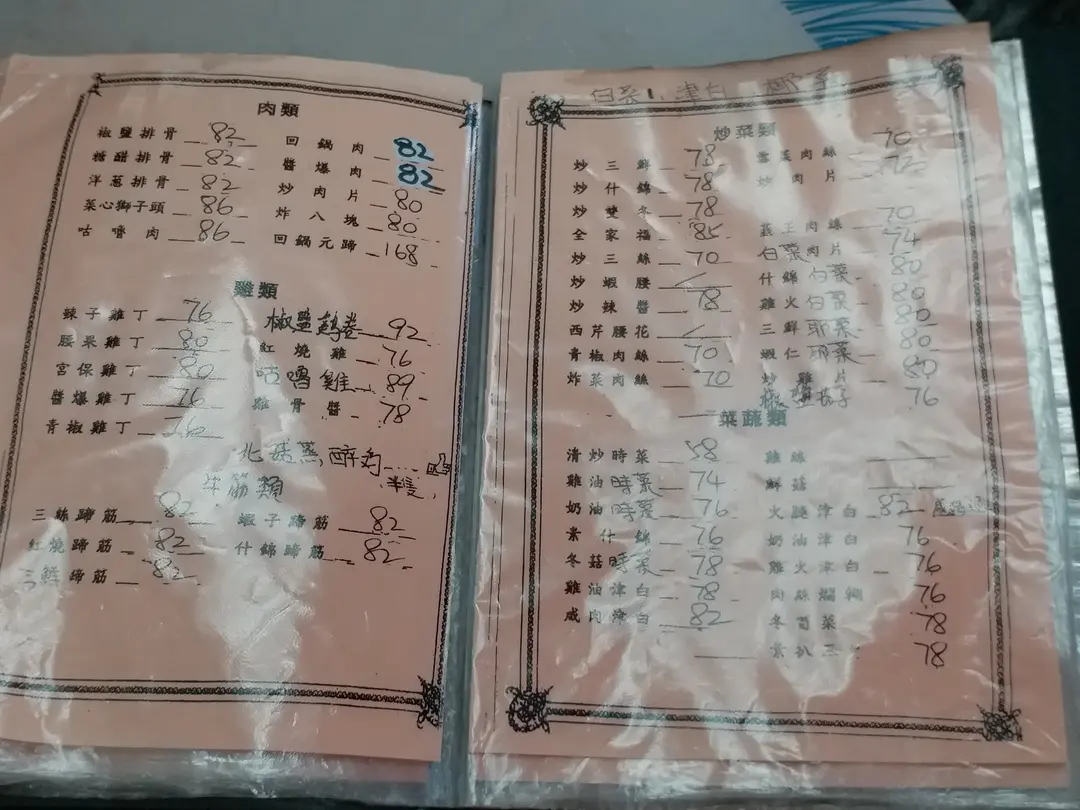 肉類
椒鹽排骨 82 回鍋肉 82
糖醋排骨 82 醬爆肉 82
洋葱排骨 82 炒肉片 80
菜心獅子頭 86 炸八塊 80
咕嚕肉 86 回鍋元蹄 168
雞類
辣子雞丁 76 椒鹽鷄卷 92
腰果雞丁 80 紅燒雞 76
宮保雞丁 80 咕嚕雞 89
醬爆雞丁 76 雞骨醬 78
青椒雞丁 76
北菇蒸醉鸡 半隻
筋類
三絲蹄筋 82 蝦子蹄筋 82
紅燒蹄筋 82 什錦蹄筋 82
三鮮蹄筋 82
白菜 津白 椰子
炒菜類
炒三鮮 78 雪菜肉絲 70
炒什錦 78 炒肉片 72
炒雙冬 78
全家福 85 韮王肉絲 70
炒三絲 70 白菜肉片 74
炒蝦腰 什錦白菜 80
炒辣醬 78 雞火白菜 80
西芹腰花 三鮮 80
青椒肉絲 70 蝦仁 80
炸菜肉絲 70 炒雞片 80
椒鹽茄子 76
菜蔬類
清炒時菜 58 雞絲
雞油時菜 74 鮮菇
奶油時菜 76 火腿津白 82
素什錦 76 奶油津白 76
冬菇時菜 78 雞火津白 76
雞油津白 78 肉絲爛糊 76
咸肉津白 82 冬筍菜 78
素扒三 78